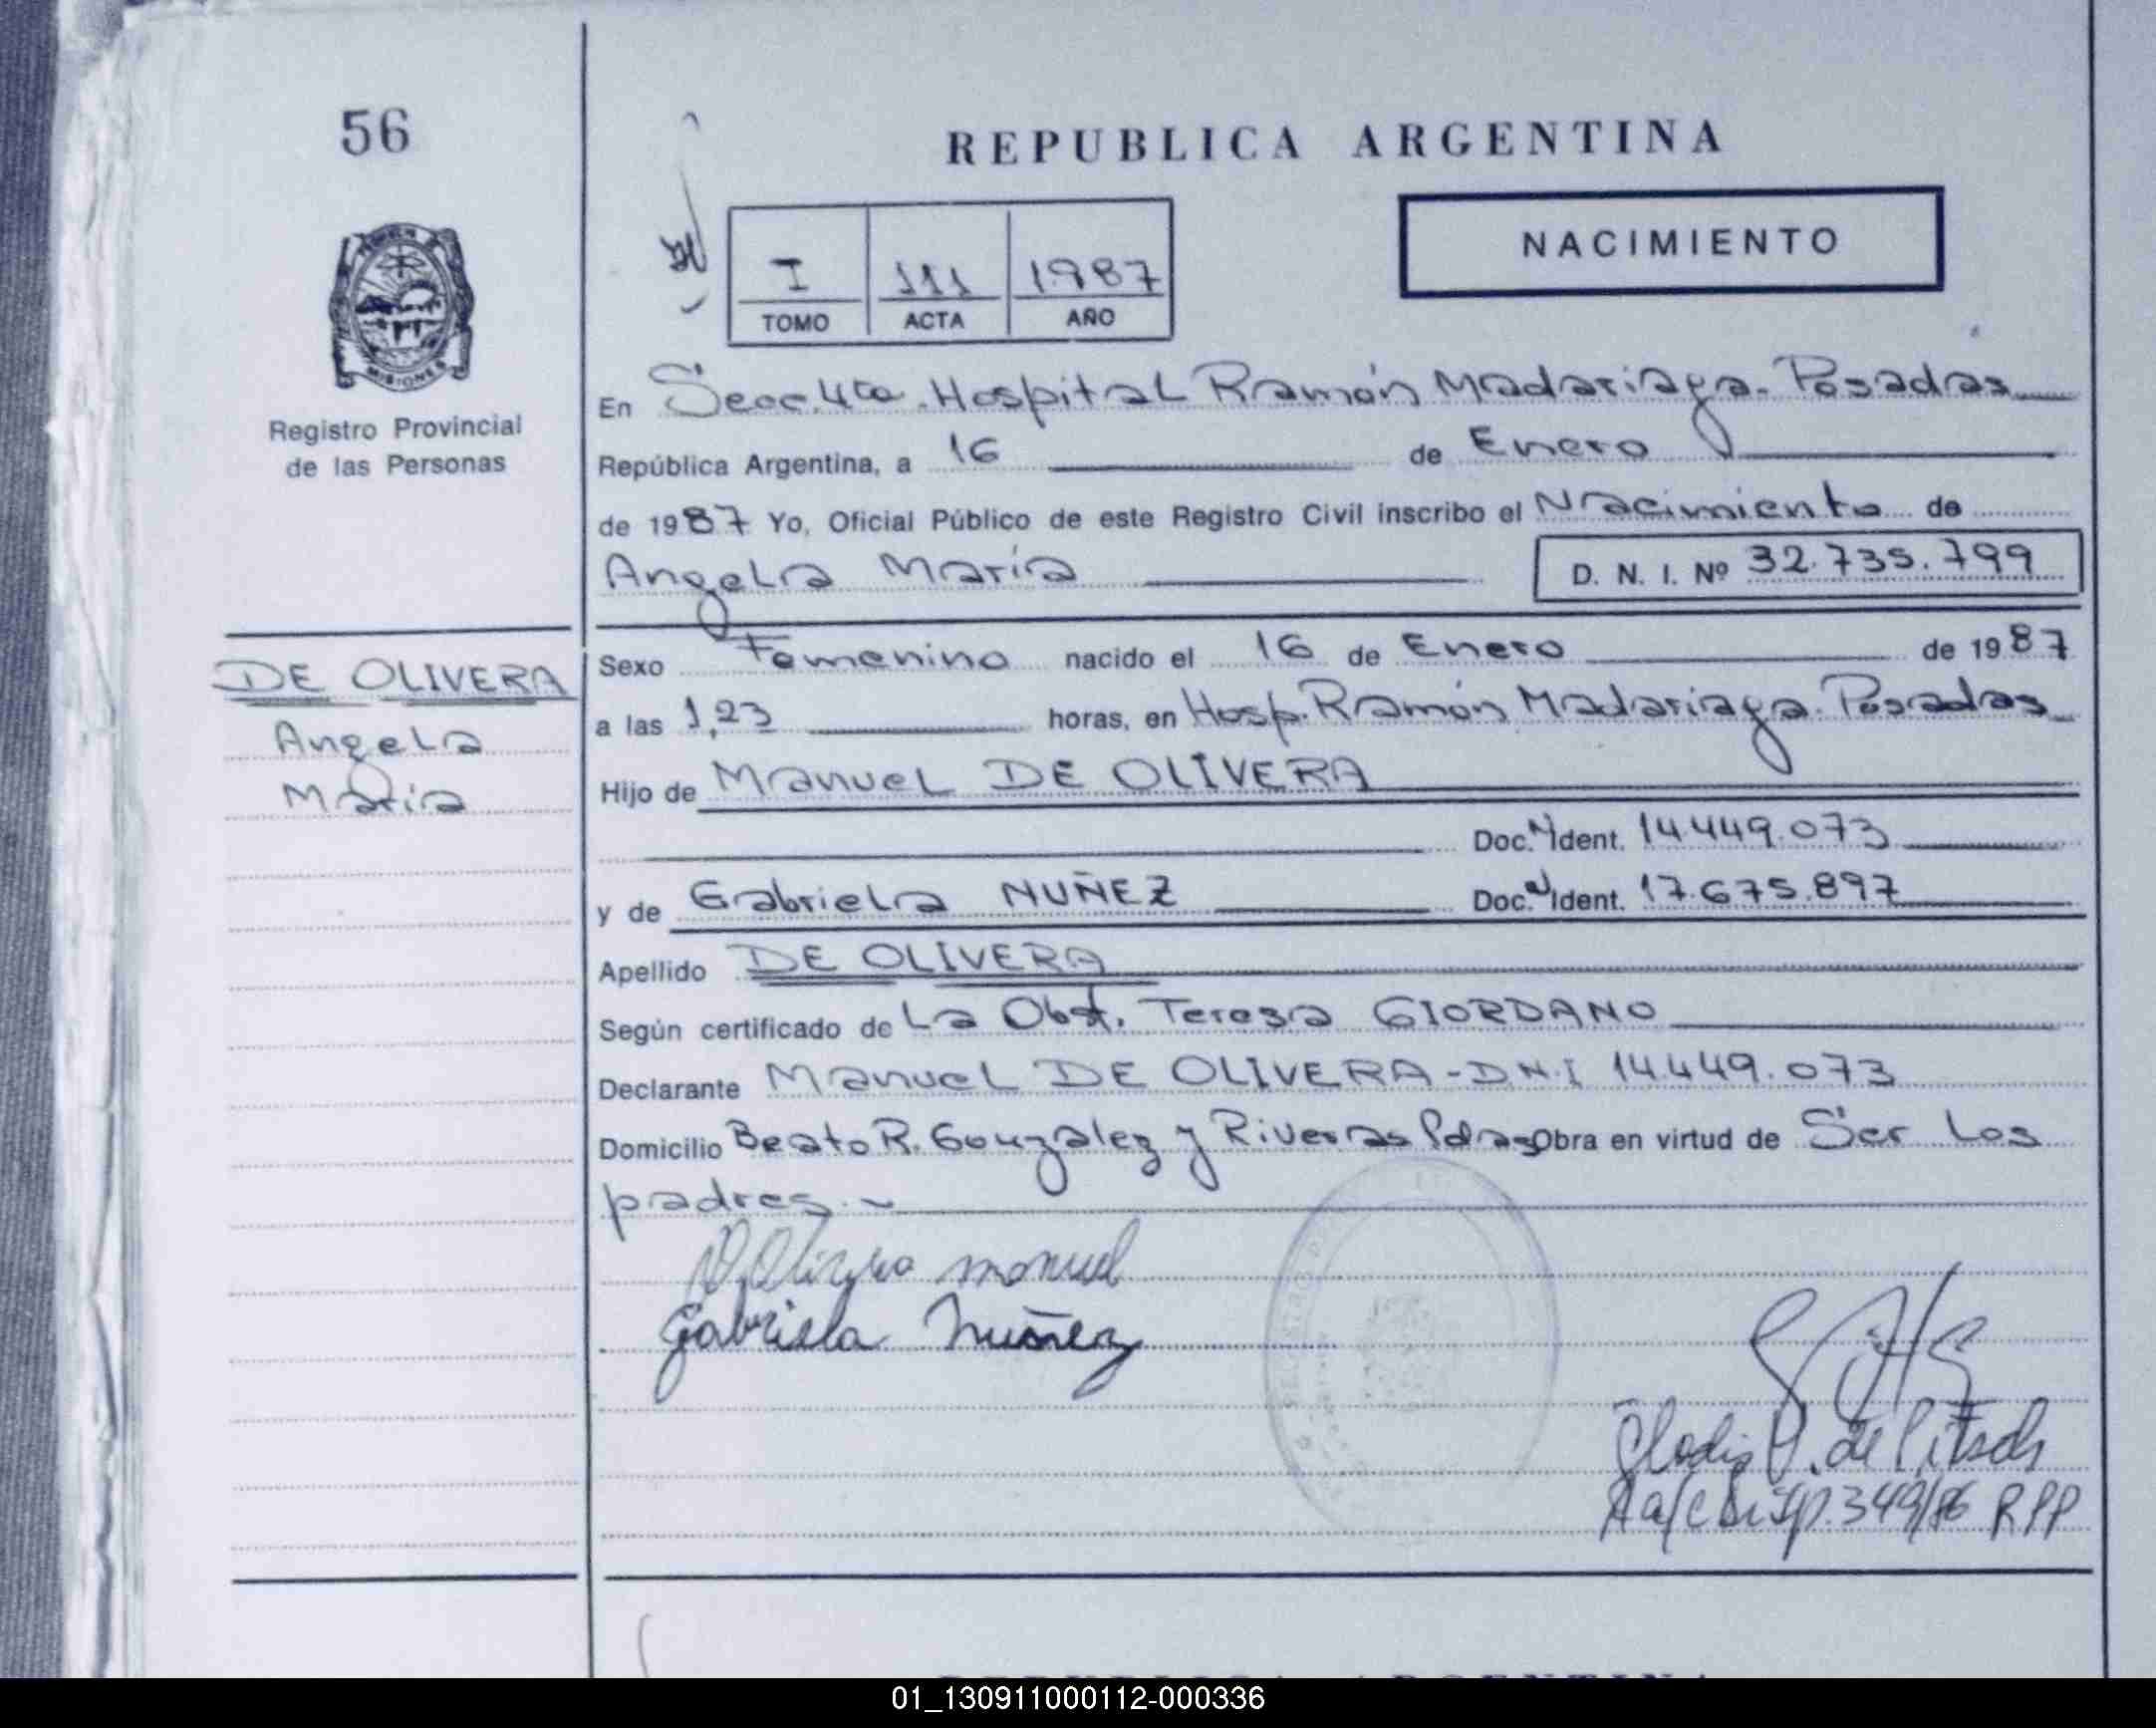 56
REPUBLICA ARGENTINA
NACIMIENTO
I 111 1987
TOMO ACTA AÑO
MISIONES
Registro Provincial
de las Personas
En Secc. 4ta. Hospital Ramón Madariaga. Posadas
República Argentina, a 16 de Enero
de 1987 Yo, Oficial Público de este Registro Civil inscribo el Nacimiento de
Angela María D. N. I. Nº 32.735.799
DE OLIVERA
Angela
María
Sexo Femenino nacido el 16 de Enero de 1987
a las 1,23 horas, en Hosp. Ramón Madariaga. Posadas
Hijo de Manuel DE OLIVERA
Doc. Ident. 14.449.073
y de Gabriela NUÑEZ Doc. Ident. 17.675.897
Apellido DE OLIVERA
Según certificado de La Obst. Teresa GIORDANO
Declarante Manuel DE OLIVERA - DNI 14.449.073
Domicilio Beato R. González y Riveras Pdas Obra en virtud de Ser Los
padres.
D Olivera manuel
Gabriela Nuñez
Gladis H. de Pitsch
A a/c Disp. 349/86 RPP
REPUBLICA ARGENTINA
01_130911000112-000336